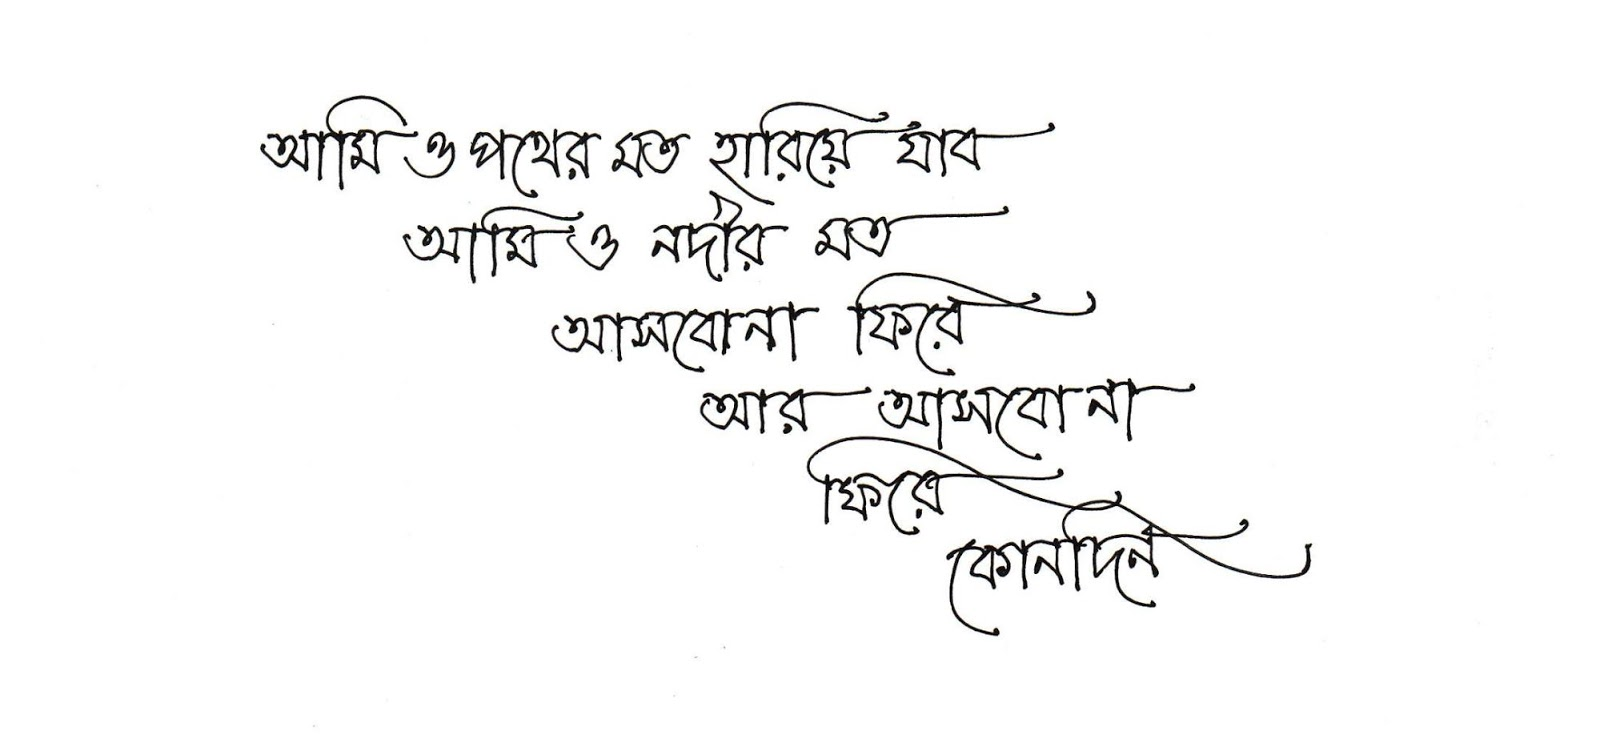 আমি ও পথের মত হারিয়ে যাব
আমি ও নদীর মত
আসবোনা ফিরে
আর আসবোনা
ফিরে
কোনদিন